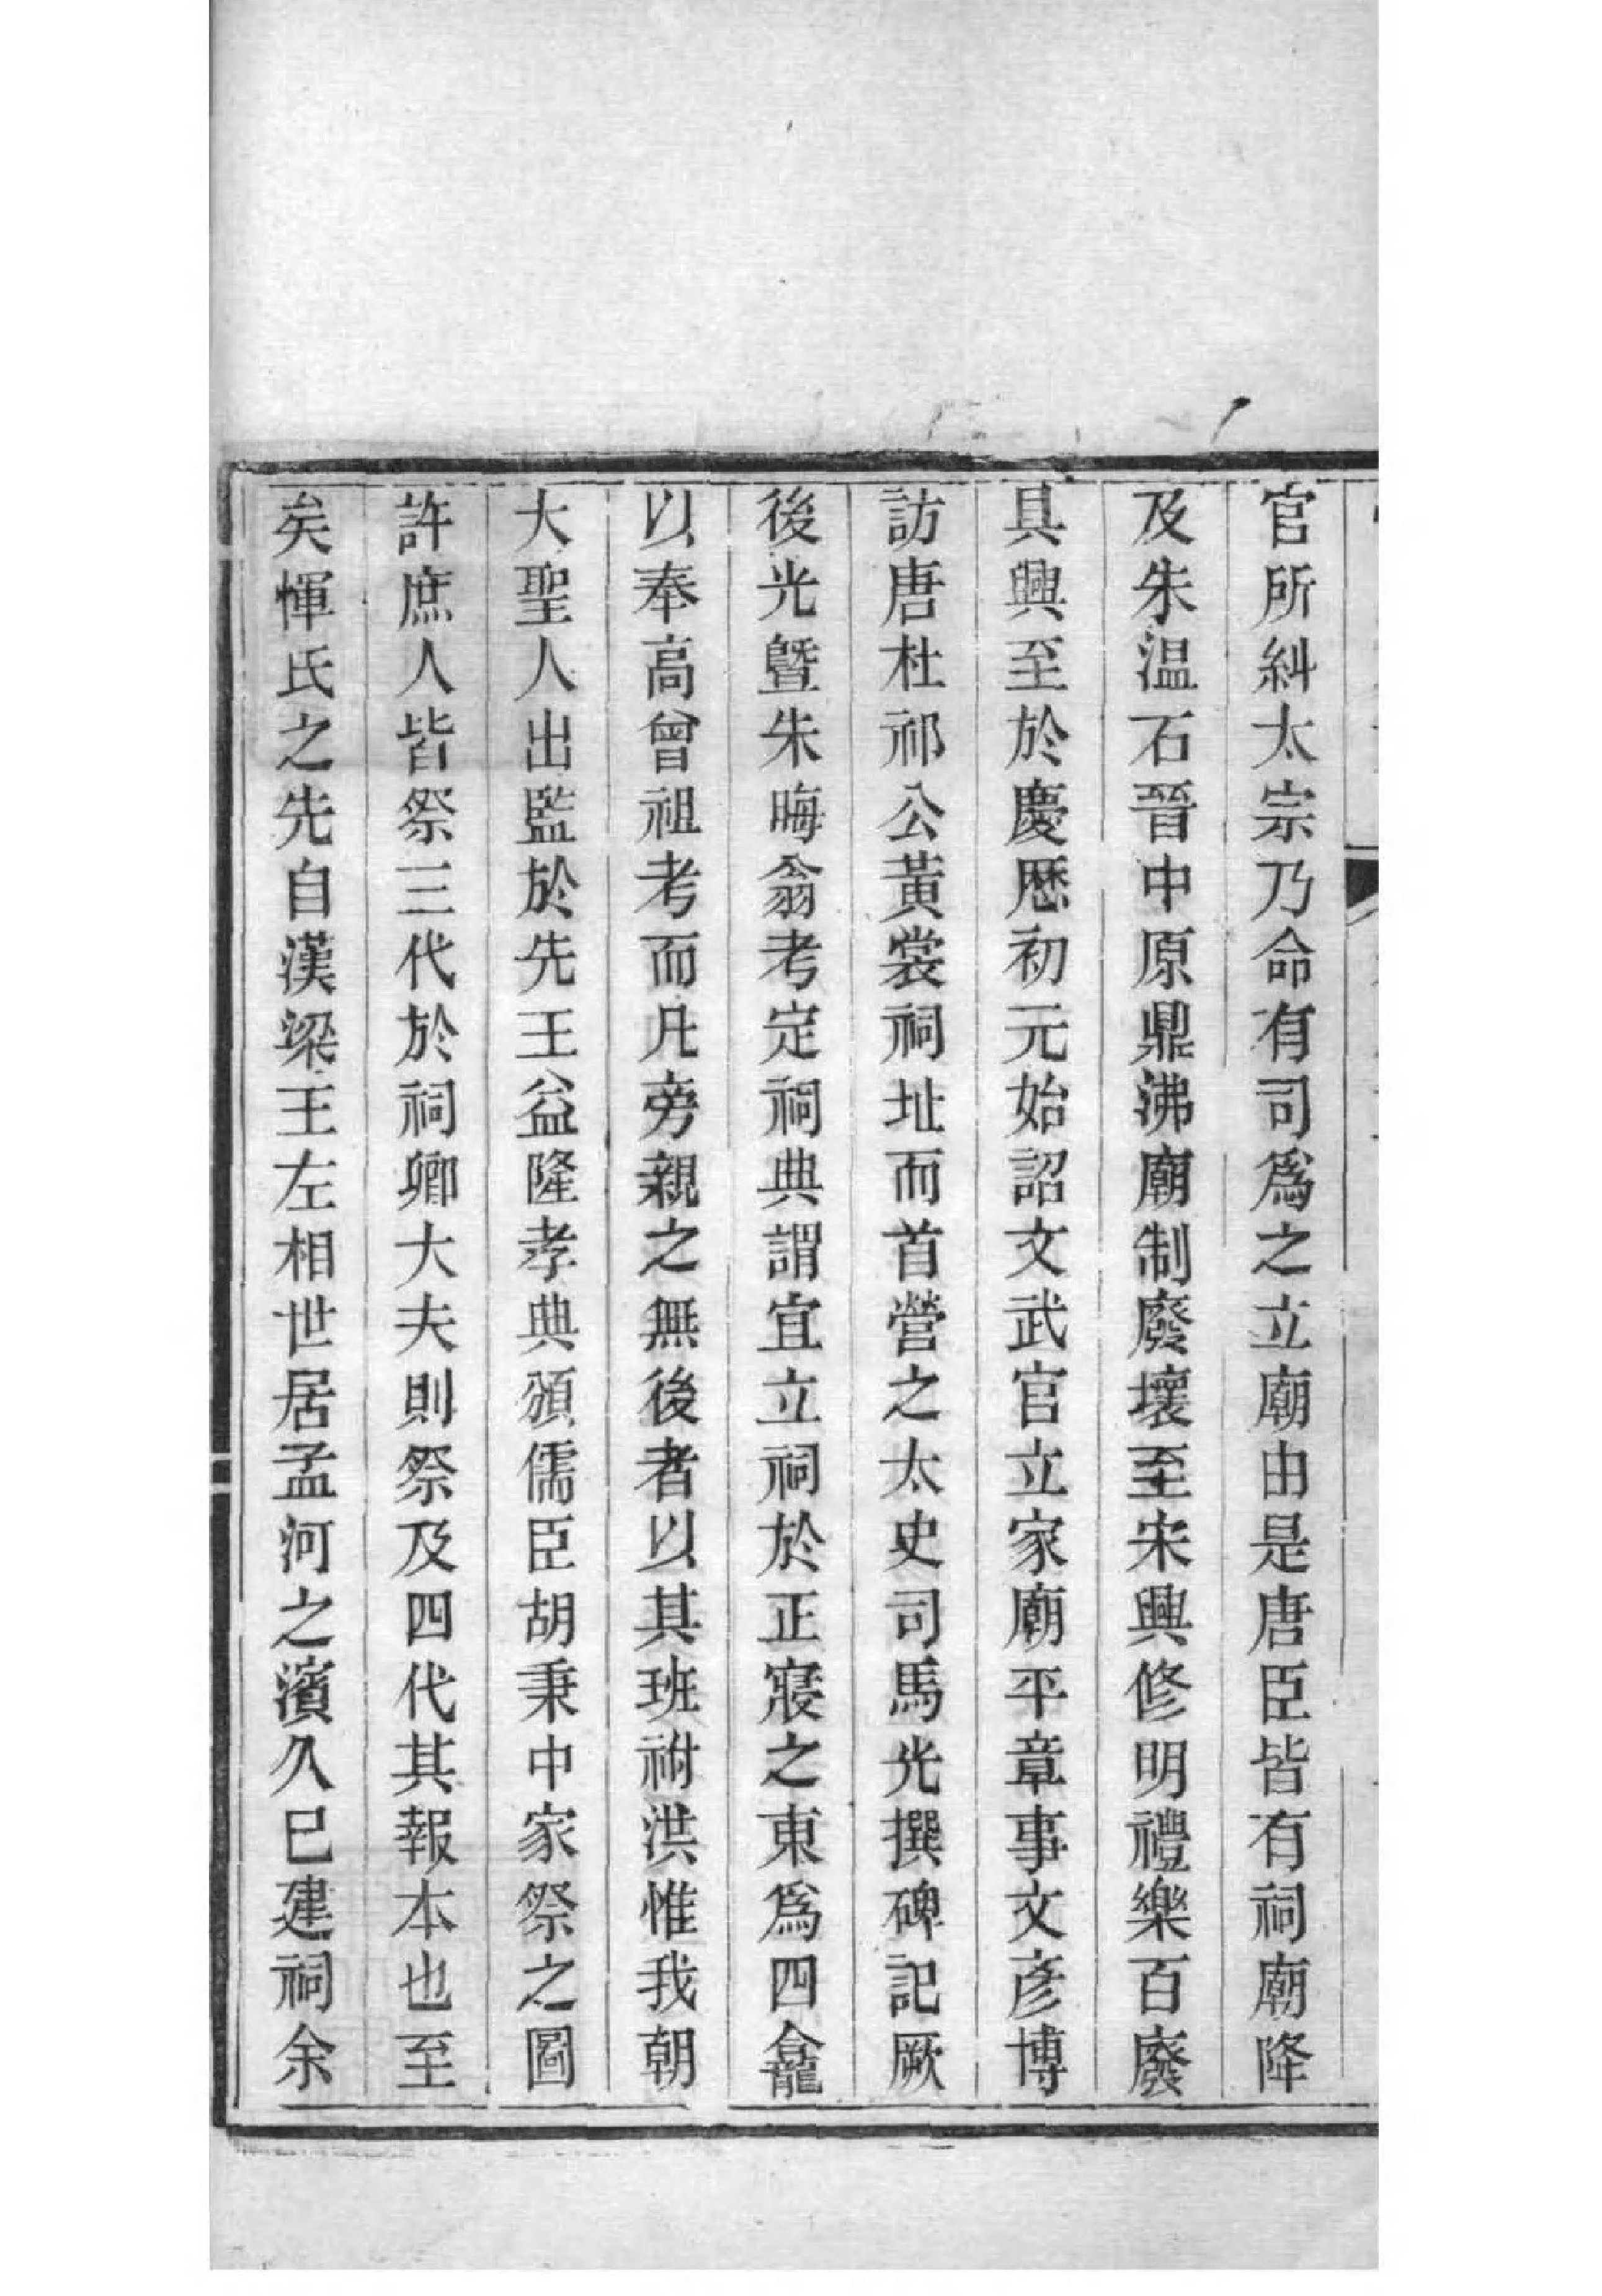 官所糾太宗乃命有司爲之立廟由是唐臣皆有祠廟降
及朱温石晉中原鼎沸廟制廢壞至宋興修明禮樂百廢
具興至於慶歷初元始詔文武官立家廟平章事文彥博
訪唐杜祁公黃裳祠址而首營之太史司馬光撰碑記厥
後光曁朱晦翁考定祠典謂宜立祠於正寢之東爲四龕
以奉高曾祖考而凡旁親之無後者以其班祔洪惟我朝
大聖人出監於先王益隆孝典頒儒臣胡秉中家祭之圖
許庶人皆祭三代於祠卿大夫則祭及四代其報本也至
矣惲氏之先自漢梁王左相世居孟河之濱久已建祠余